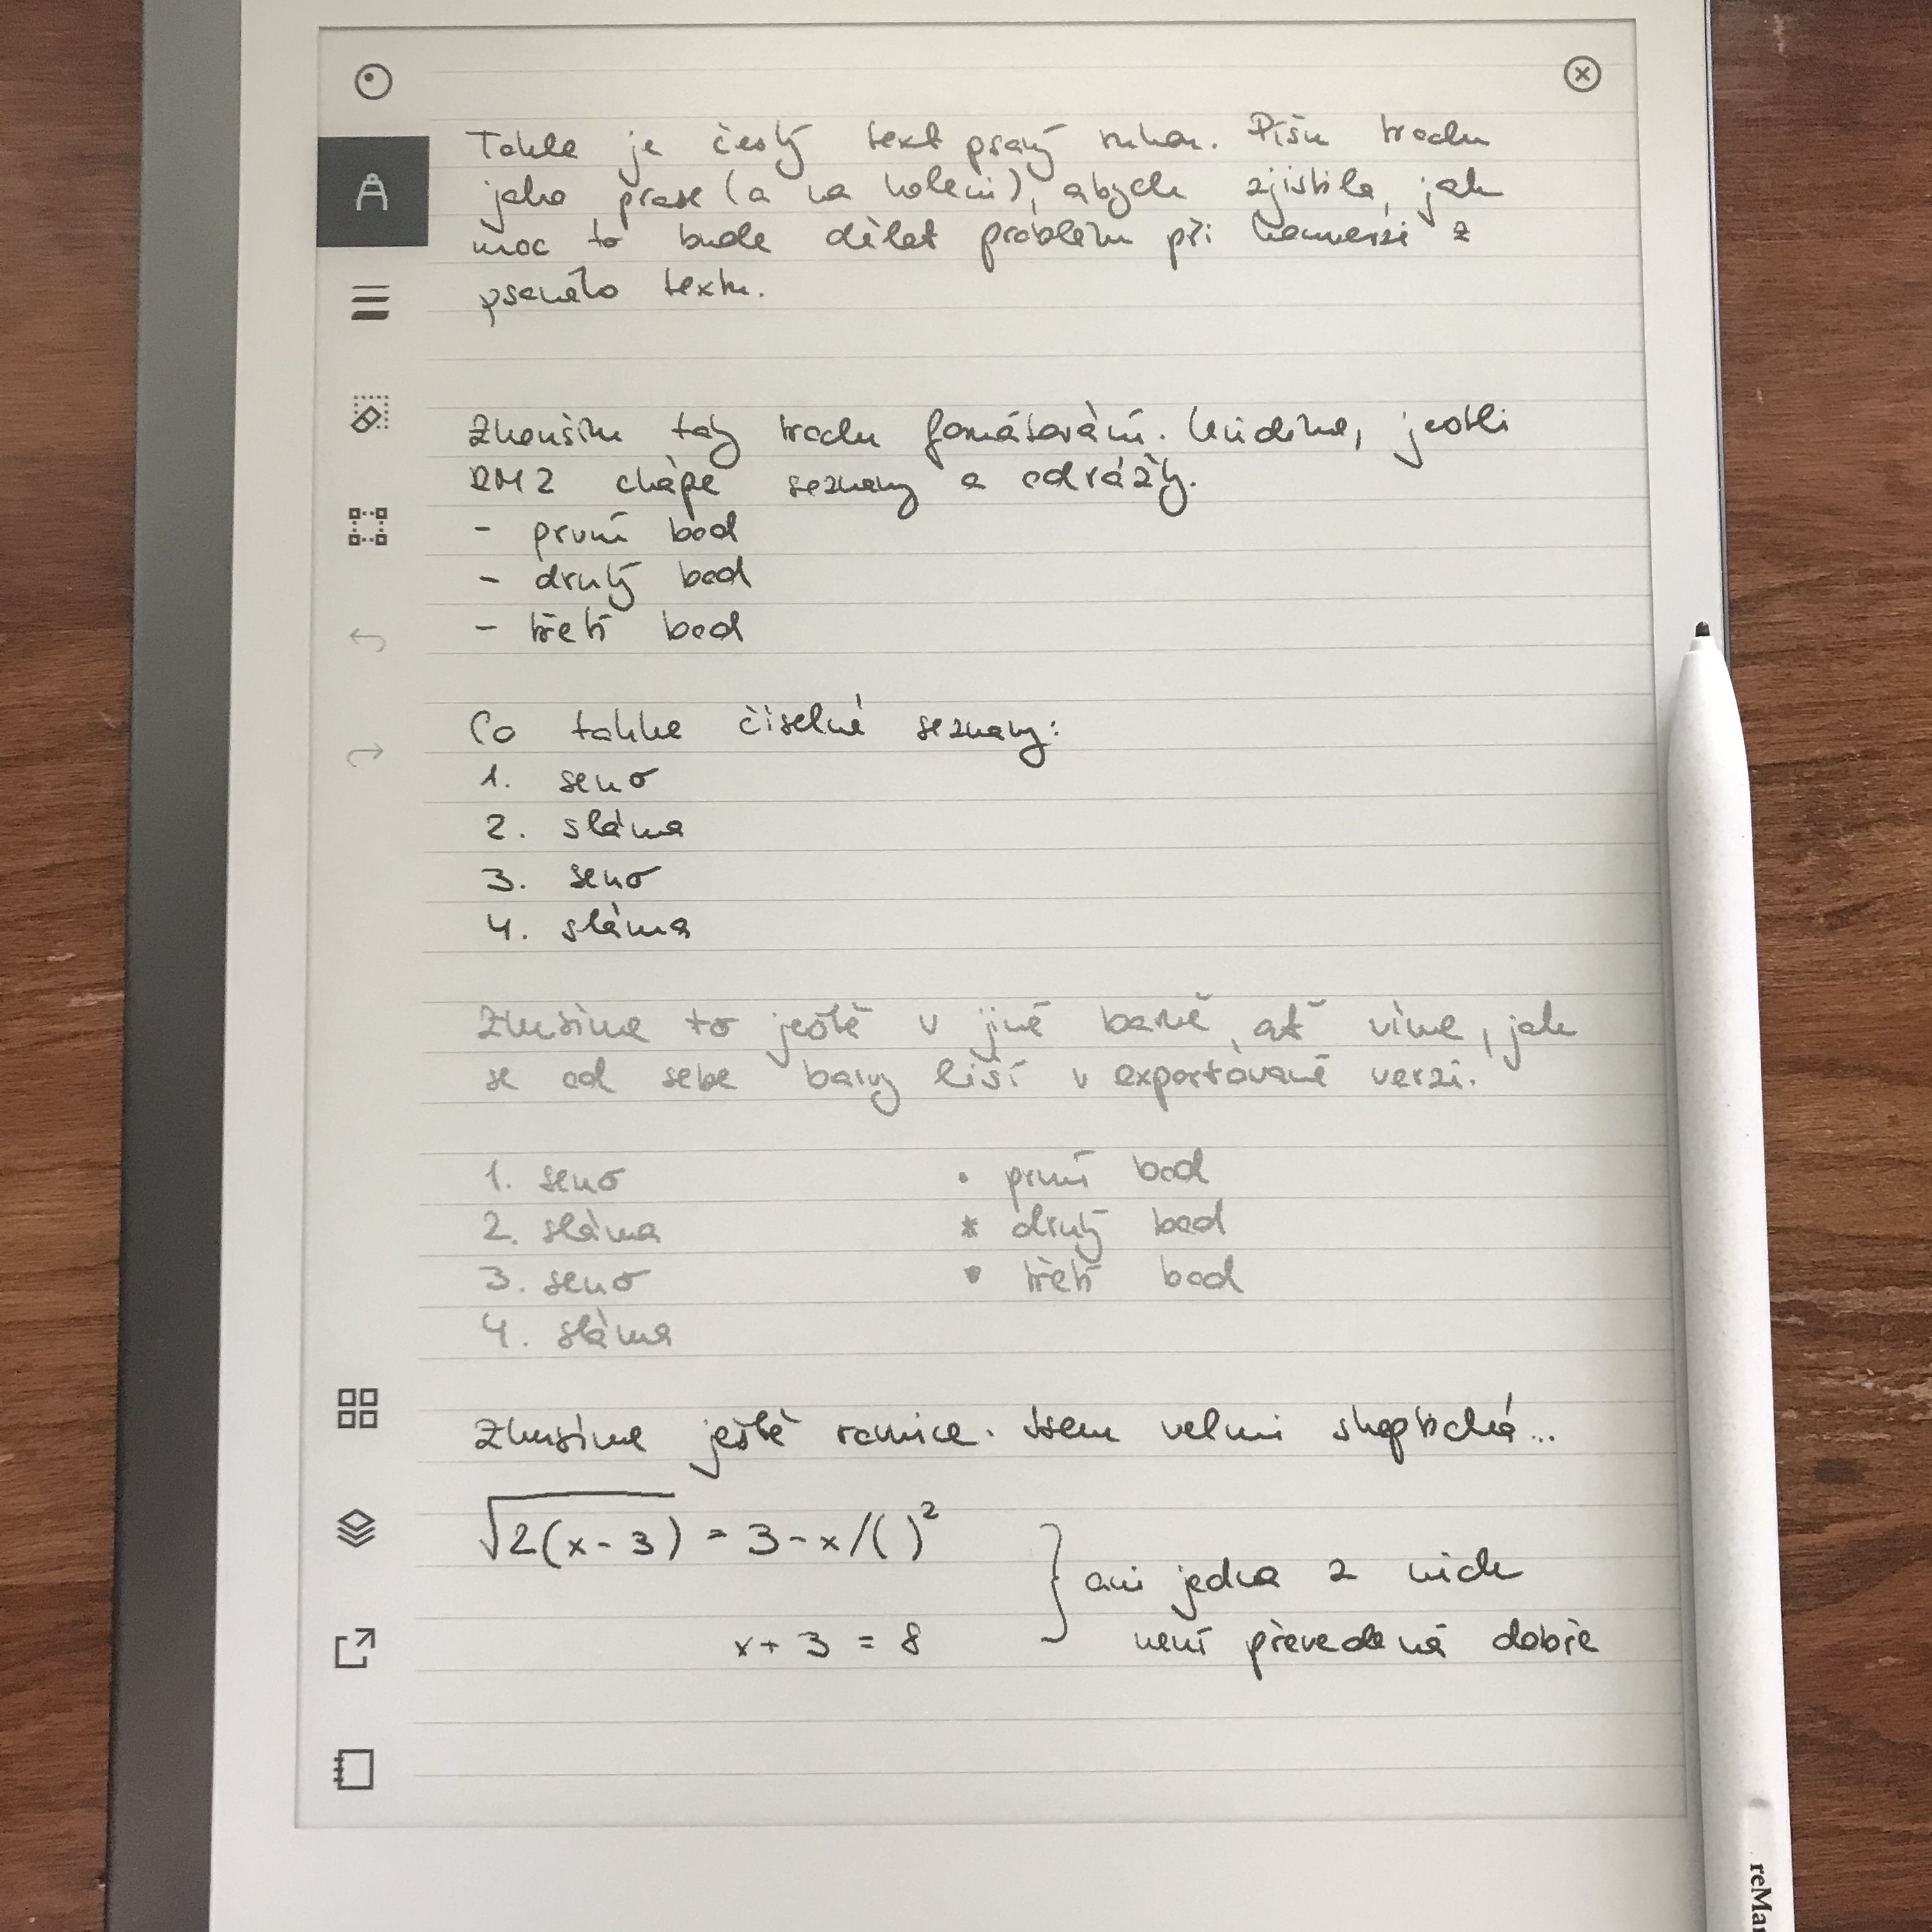 Tohle je český text psaný rukou. Píšu trochu
jako prase (a na koleni), abych zjistila, jak
moc to bude dělat problém při konverzi z
psaného textu.
Zkouším taky trochu formátování. Uvidíme, jestli
RM2 chápe seznamy a odrážky.
- první bod
- druhý bod
- třetí bod
Co takhle číselné seznamy:
1. seno
2. sláma
3. seno
4. sláma
Zkusíme to ještě v jiné barvě, ať víme, jak
se od sebe barvy liší v exportované verzi.
1. seno
2. sláma
3. seno
4. sláma
• první bod
* druhý bod
• třetí bod
Zkusíme ještě rovnice. Jsem velmi skeptická...
√2(x-3) = 3-x/( )²
x+3 = 8
} ani jedna z nich
není převedená dobře
reMar